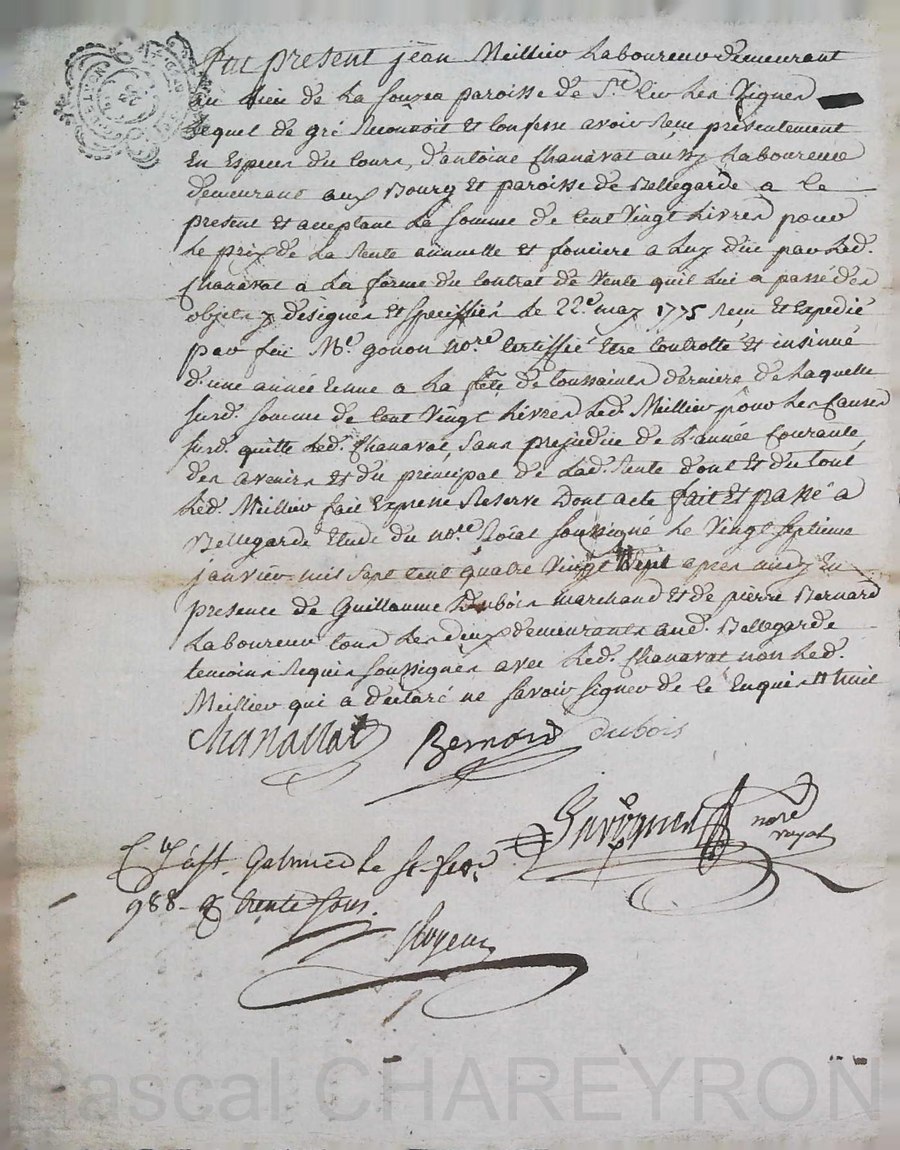 Fut present jean Meillier Laboureur demeurant
au lieu de La Souzea paroisse de St Cir les Vignes
Lequel de gré Reconnoit et confesse avoir Reçu présentement
En Especes du Cours, d'antoine Chanavat aussy Laboureur
demeurant aux Bourg et paroisse de Bellegarde a ce
present et acceptant La Somme de Cent Vingt Livres pour
Le prix de La Rente annuelle et fonciere a luy düe par Led.
Chanavat a La forme du Contrat de Vente quil lui a passé des
objets y désignés et speciffiés le 22e may 1775 Reçu et Expedié
par feü Me gonon nore Certiffié être Controllé et insinué
d'une année Echue a La fête de toussaints derniere de Laquelle
susd. Somme de Cent Vingt Livres Led. Meillier pour les Causes
susd. quitte Led. Chanavat, Sans prejudice de L'année Courante
des avenirs et du principal de Lad. Rente dont et du tout
Led. Meillier fait Expresse Reserve Dont acte fait et passé a
Bellegarde Etude du nore Roïal soussigné Le Vingt Septieme
janvier mil Sept Cent quatre Vingt huit apres midy En
presence de Guillaume Dubois marchand et de pierre Bernard
Laboureur tous Les deux demeurants aud. Bellegarde
temoins Requis soussignés avec Led. Chanavat non Led.
Meillier qui a declaré ne savoir signer de ce Enquis # huit
Chanavat Bernard dubois
nore
royal
Galmier le
988 trente sous.
Pascal CHAREYRON